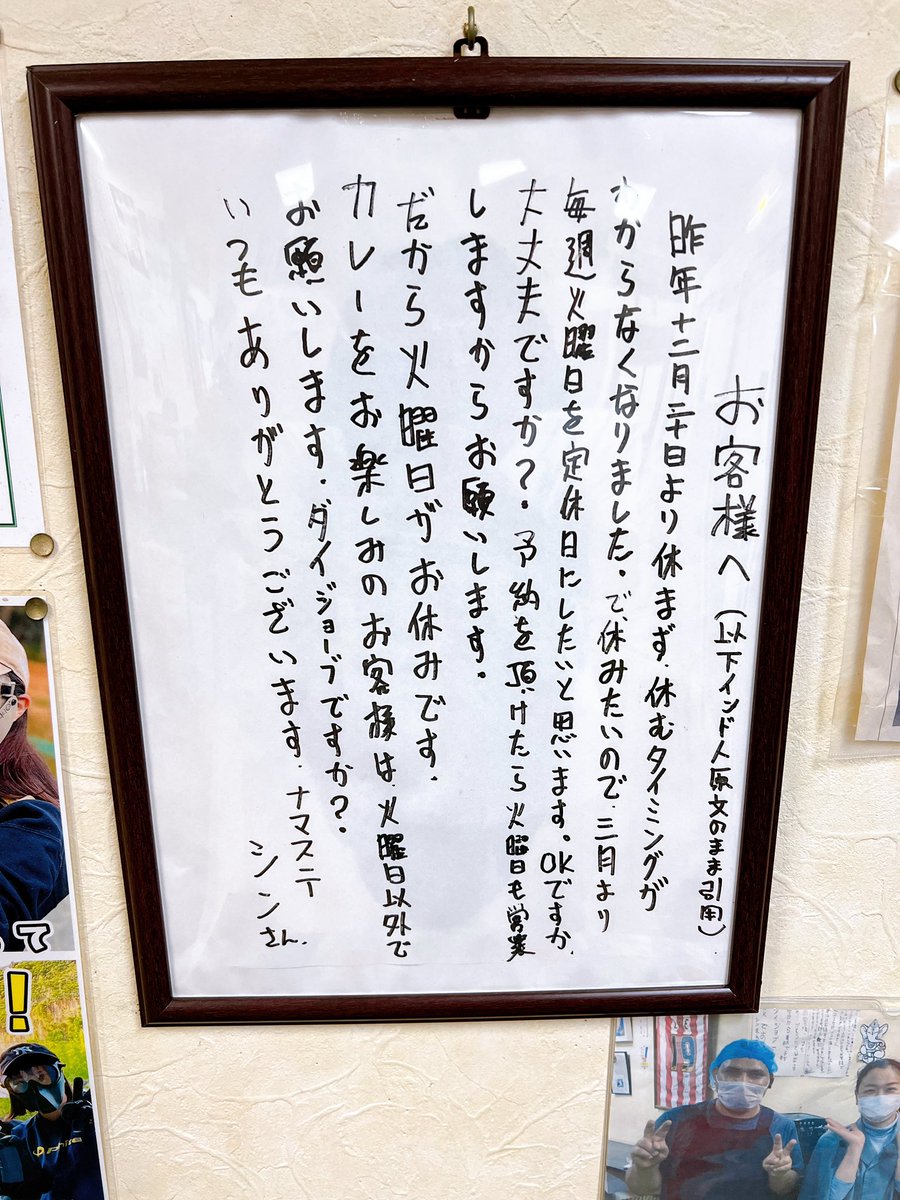 お客様へ（以下インド人原文のまま引用）
昨年十二月三十日より休まず、休むタイミングが
わからなくなりました。で休みたいので、三月より
毎週火曜日を定休日にしたいと思います。OKですか、
大丈夫ですか?。予約を頂けたら火曜日も営業
しますからお願いします。
だから火曜日がお休みです。
カレーをお楽しみのお客様は、火曜日以外で
お願いします。ダイジョーブですか?
いつもありがとうございます。ナマステ
シンさん.
て
!
19